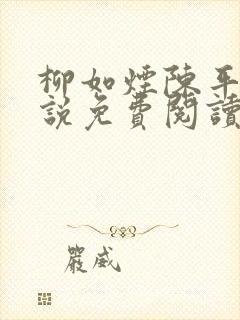 柳如煙陳平
說免費閱讀
嚴威